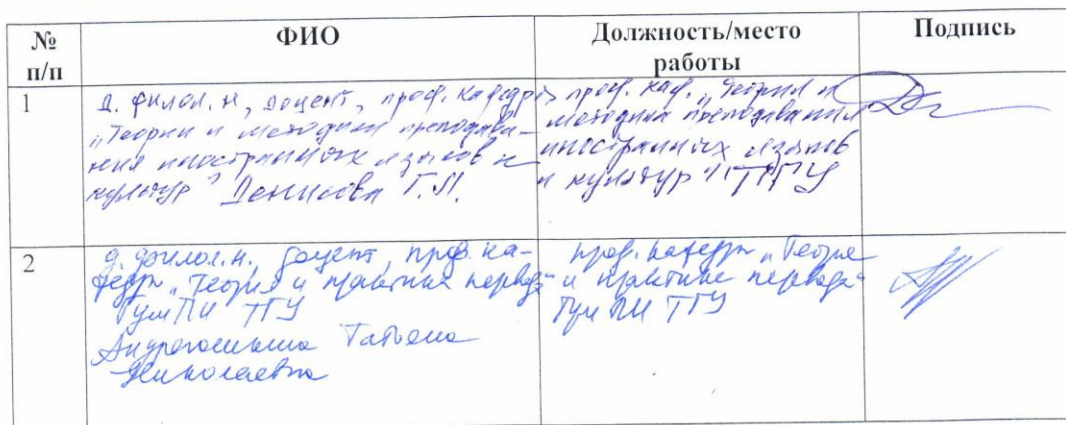 № п/п
ФИО
Должность/место работы
Подпись
1
д. филол. н., доцент, проф. кафедры
„Теории и методики преподава-
ния иностранных языков и
культур" Денисова Г.Л.
проф. каф. „Теории и
методики преподавания
иностранных языков
и культур" ТГУ
2
д. филол. н., доцент, проф. ка-
федры „Теория и практика перевода"
ГумПИ ТГУ
Андрюхина Татьяна
Николаевна
проф. кафедры „Теория
и практика перевода"
ГумПИ ТГУ